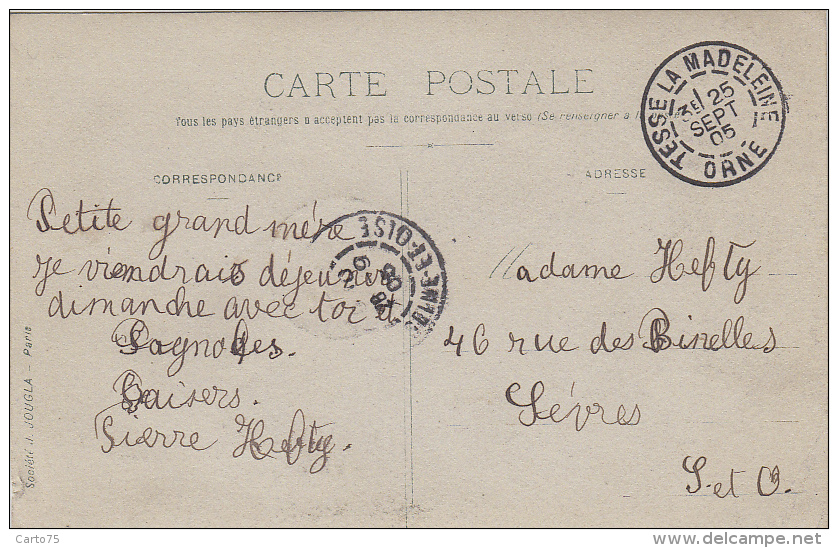 CARTE POSTALE
Tous les pays étrangers n'acceptent pas la correspondance au verso (Se renseigner à la
CORRESPONDANCE
ADRESSE
TESSE LA MADELEINE
3E 25
SEPT
05
ORNE
Petite grand mére
je viendrais déjeuner
dimanche avec toi à
Bagnoles.
Baisers.
Pierre Hefty.
NE-ET-OISE
Madame Hefty
46 rue des Binelles
Sévres
S. et O.
Société J. JOUGLA - Paris
Carto75